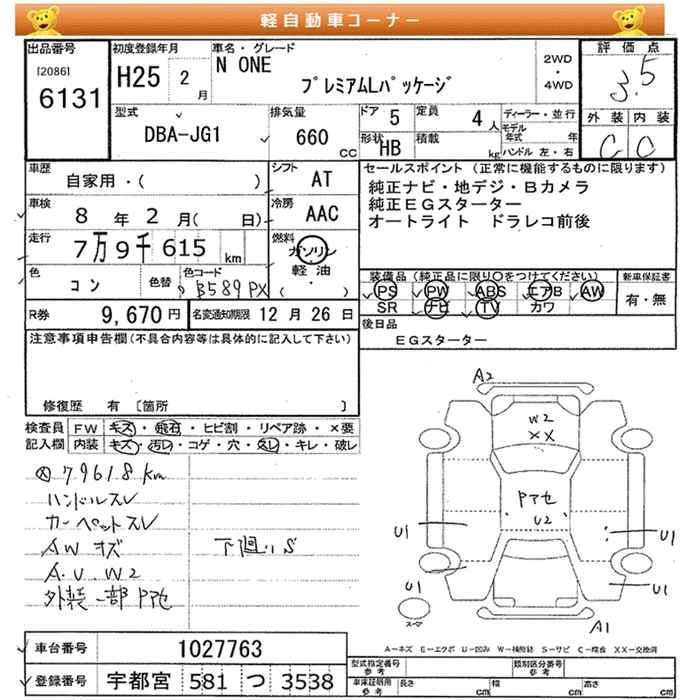 軽自動車コーナー
出品番号 [2086] 6131
初度登録年月 H25 2月
車名・グレード N ONE プレミアムLパッケージ
2WD・4WD
評価点 3.5
外装 C 内装 C
型式 DBA-JG1
排気量 660 CC
ドア 5
定員 4人
形状 HB
積載 kg
ディーラー・並行
モデル年式 年
ハンドル 左・右
車歴 自家用・( )
シフト AT
車検 8年2月( 日)
冷房 AAC
走行 7万9千615km
燃料 ガソリン 軽油 ( ・ )
色 コン
色替
色コード B589PX
セールスポイント(正常に機能するものに限ります)
純正ナビ・地デジ・Bカメラ
純正EGスターター
オートライト ドラレコ前後
装備品(純正品に限り○をつけてください)
PS PW ABS エアB AW
SR ナビ TV カワ
新車保証書 有・無
R券 9,670円
名変通知期限 12月26日
後日品
EGスターター
注意事項申告欄(不具合内容等は具体的に記入して下さい)
修復歴 有 [箇所 ]
検査員記入欄
FW キズ・飛石・ヒビ割・リペア跡・×要
内装 キズ・汚レ・コゲ・穴・スレ・キレ・破レ
79618km
ハンドルスレ
カーペットスレ
AW キズ
下廻りS
A.U.W2
外装一部Pアセ
A2
W2
XX
Pアセ
U2
U1
U1
U1
U1
スペーマ
A1
A－キズ E－エクボ U－凹み W－補修跡 S－サビ C－腐食 XX－交換済
車台番号 1027763
登録番号 宇都宮 581 つ 3538
型式指定番号 参考
類別区分番号 参考
車庫証明用 参考 長さ cm 幅 cm 高さ cm